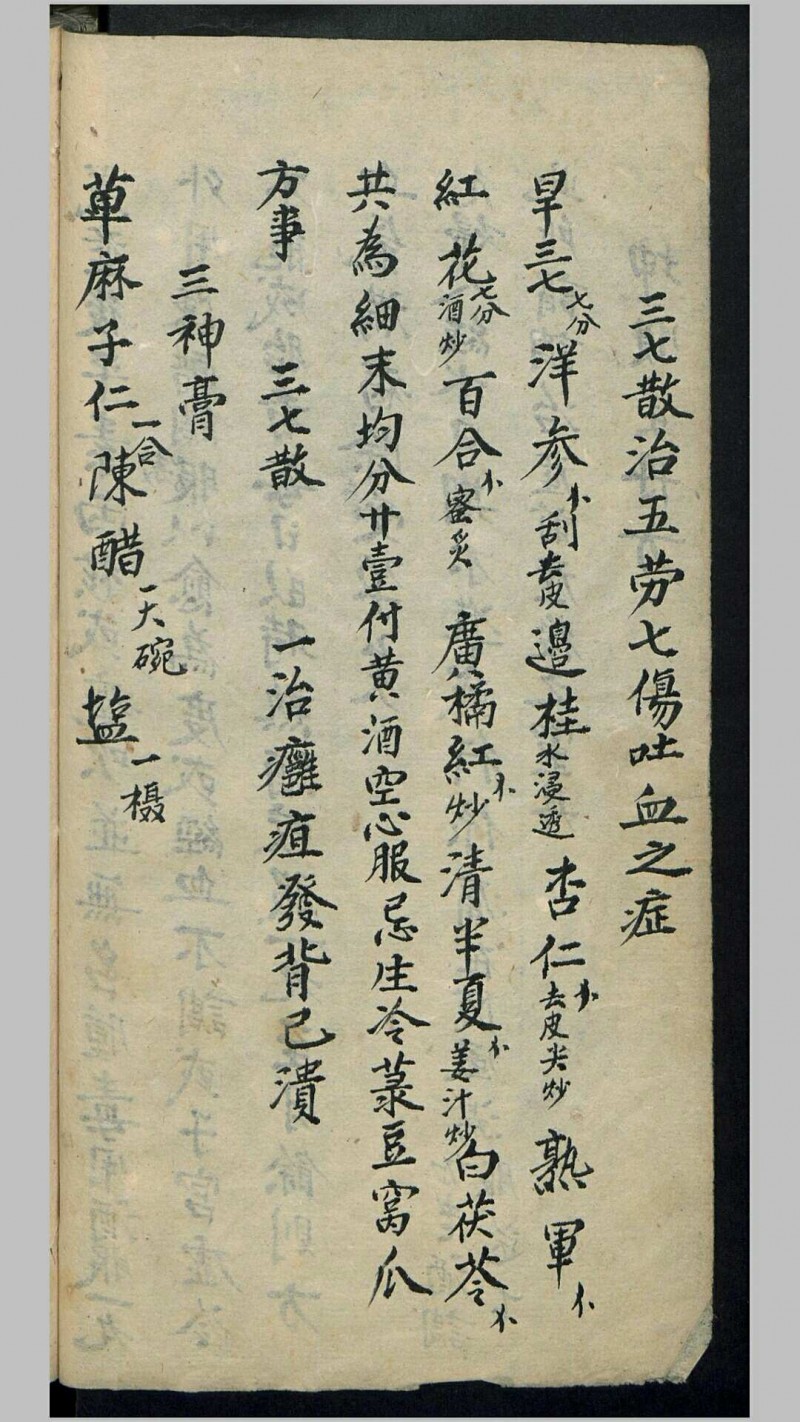 三七散治五劳七傷吐血之症
旱三七七分洋参刮去皮邉桂水浸透杏仁去皮尖炒熟軍
紅花七分酒炒百合蜜炙廣橘紅炒清半夏姜汁炒白茯苓
共為細末均分廿壹付黄酒空心服忌生冷菉豆窩瓜
方事 三七散 一治癰疽發背已潰
三神膏
萆麻子仁一合陳醋一大碗塩一撮